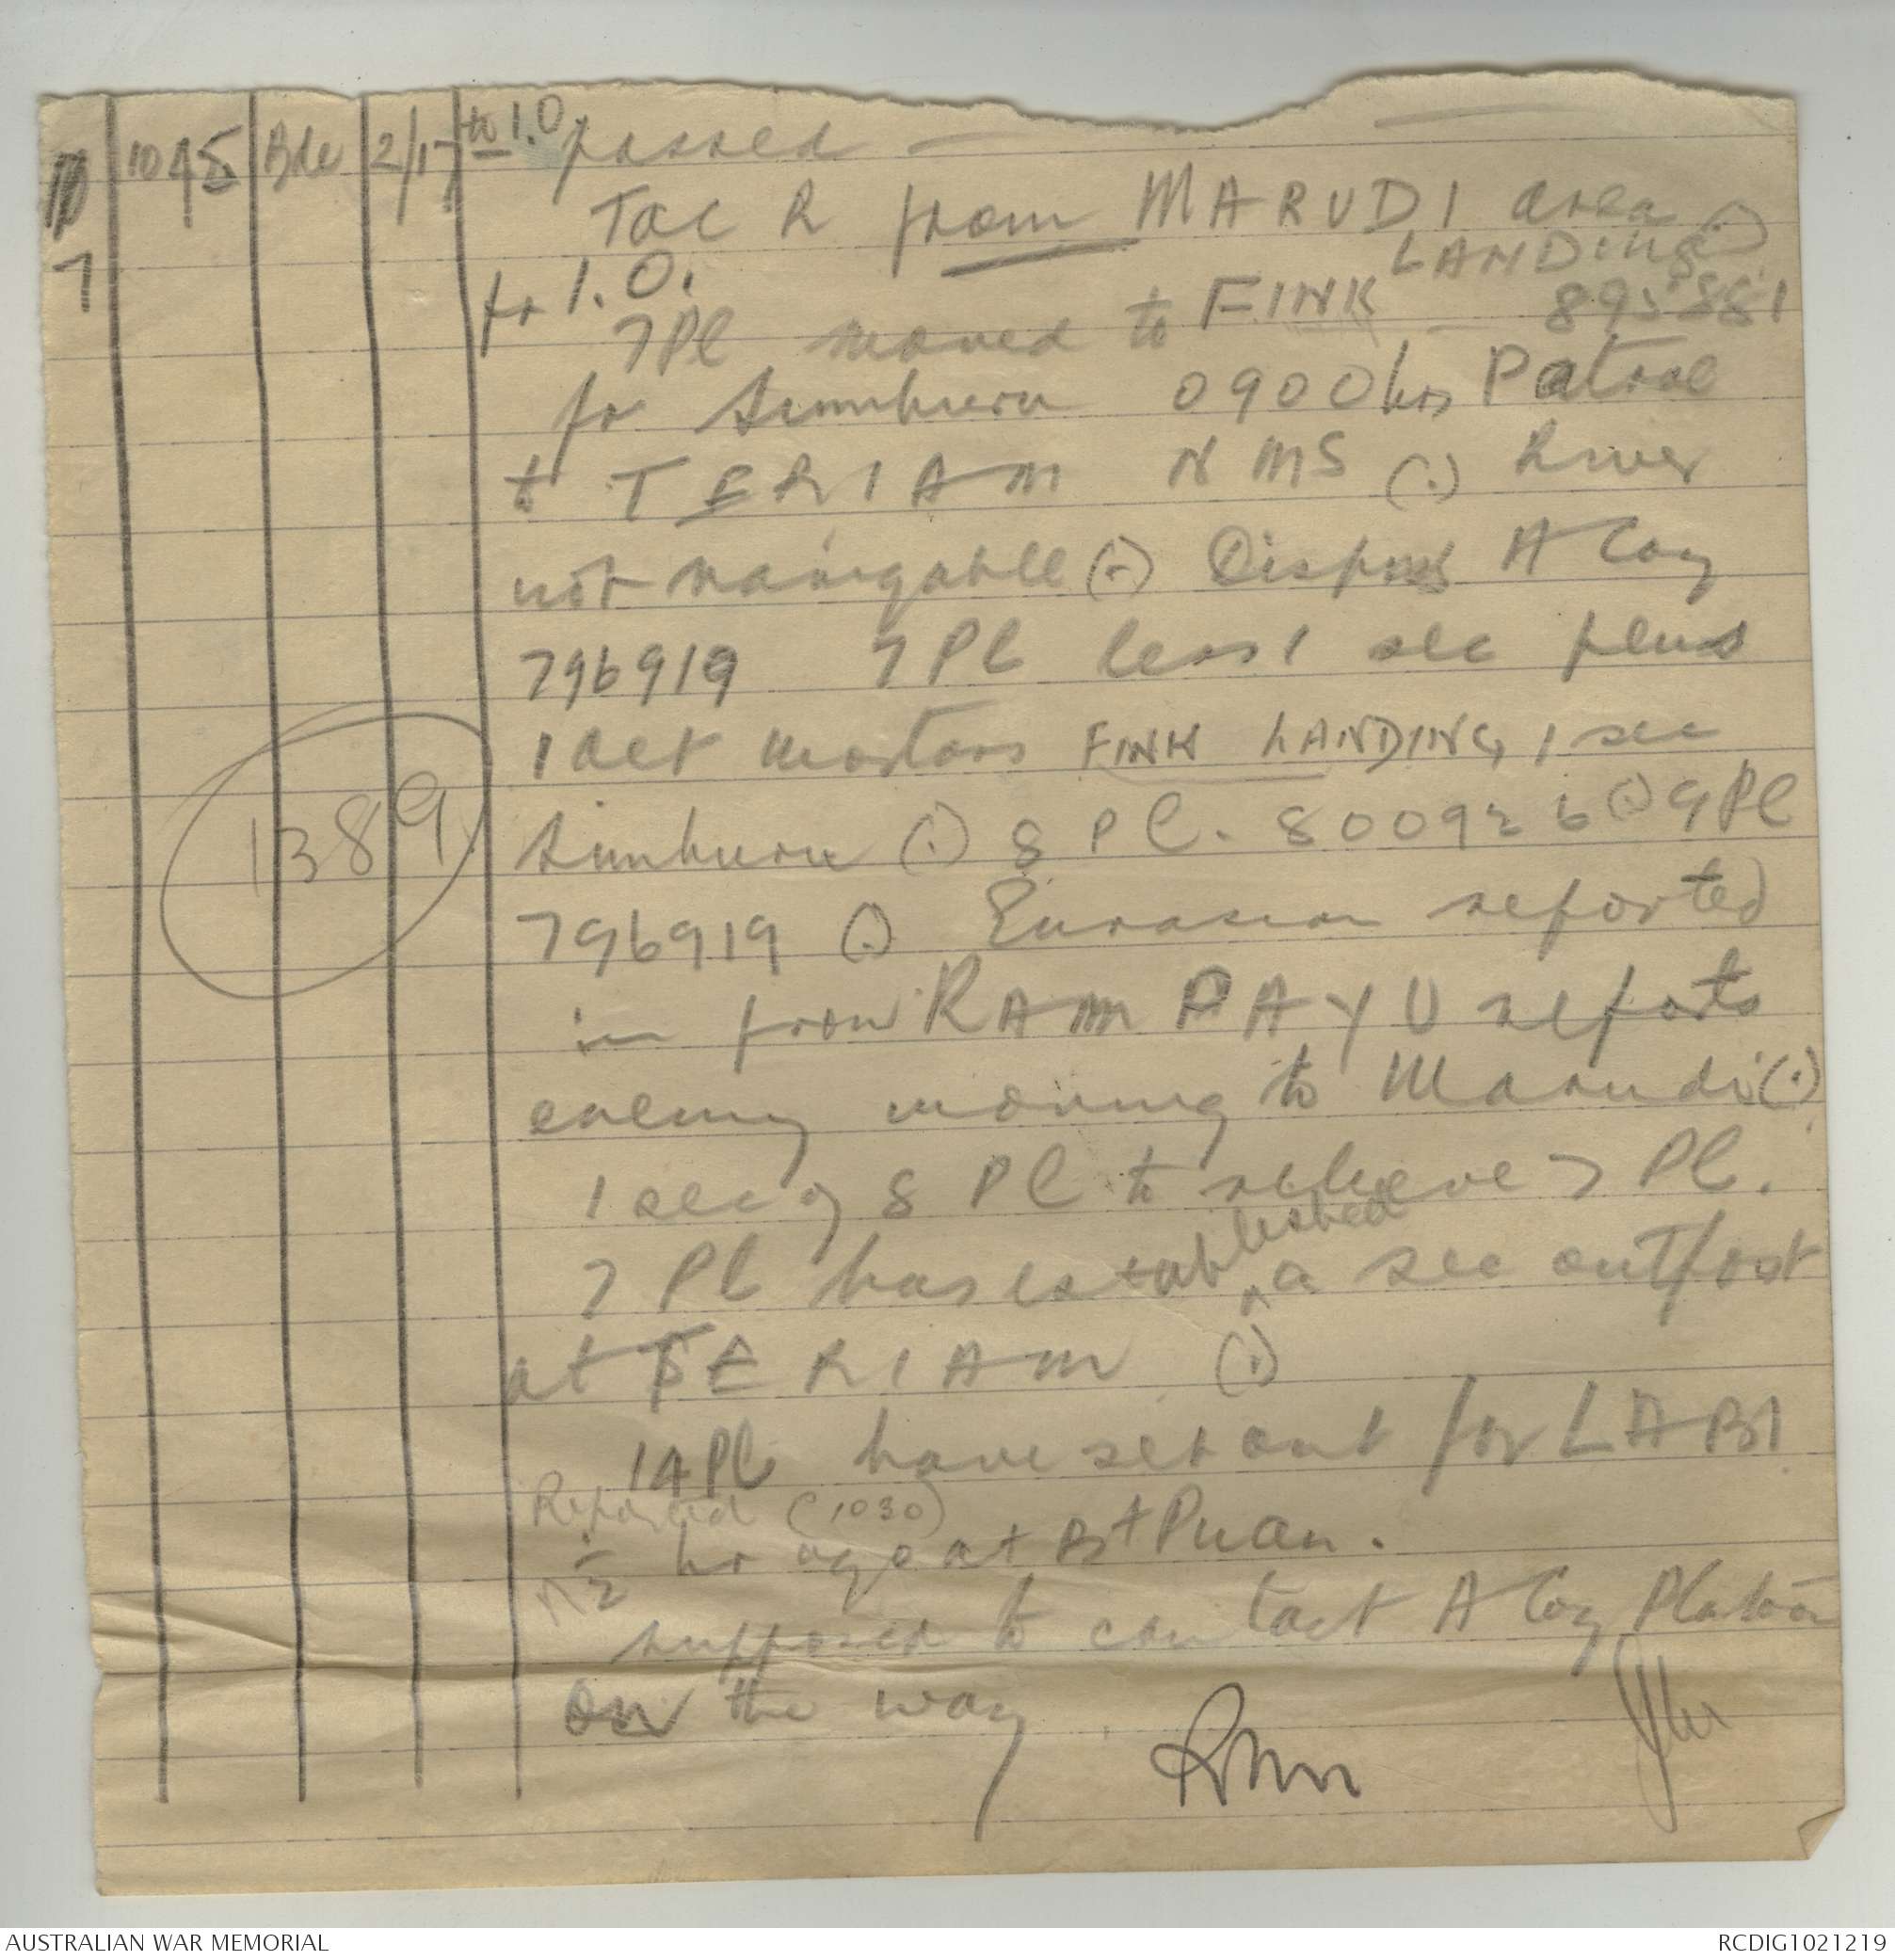 7 1045 Bde 2/17 to I.O. passed —
Tac R from MARUDI area (.)
fr I.O.
7 Pl moved to FINK LANDING 895881
fr Simburu 0900 hrs Patrol
to TERIAM NMS (.) River
not navigable (.) Dispns A Coy
796919 7 Pl less 1 sec plus
1 det mortars FINK LANDING, 1 sec
Simburu (.) 8 Pl. 800926 (.) 9 Pl
796919 (.) Eurasian reported
in from RAMPAYU reports
enemy moving to Marudi (.)
1 sec of 8 Pl to relieve 7 Pl.
7 Pl has established a sec outpost
at TERIAM (.)
14 Pl have set out for LABI
Reported (1030)
½ hr ago at Bt Puan.
supposed to contact A Coy Platoon
on the way
1389
AUSTRALIAN WAR MEMORIAL
RCDIG1021219